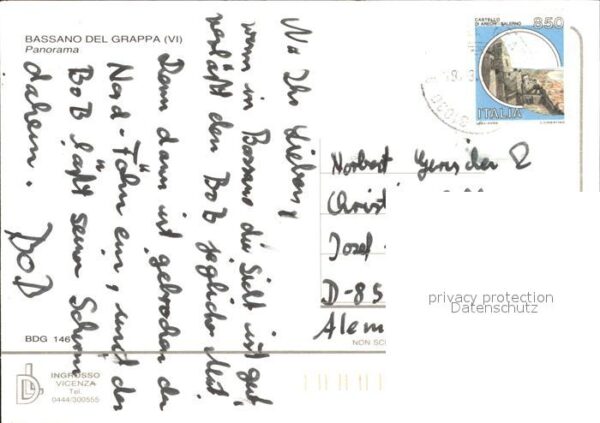 BASSANO DEL GRAPPA (VI)
Panorama
Na Ihr Lieben,
wenn in Bassano die Sicht ist gut
verläßt den BoB jeglicher Mut
Denn dann ist gebrochen der
Nord-Föhn ein, und der
BoB läßt seinen Schirm
daheim.
BoB
CASTELLO
DI ARECHI - SALERNO
850
ITALIA
Norbert
Christ
Josef
D-85
Alem
privacy protection
Datenschutz
BDG 146
NON SC
INGROSSO
VICENZA
Tel.
0444/300555